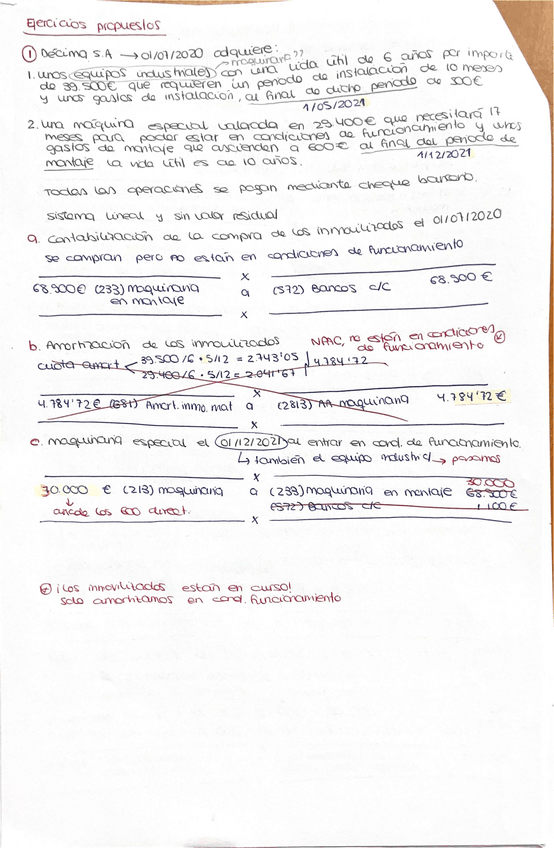 Ejercicios propuestos
① Décima S.A → 01/07/2020 adquiere:
maquinaria??
1. unos equipos industriales con una vida útil de 6 años por importe
de 39.500€ que requieren un periodo de instalación de 10 meses
y unos gastos de instalación, al final de dicho periodo de 500€
1/05/2021
2. una máquina especial valorada en 29.400€ que necesitará 17
meses para poder estar en condiciones de funcionamiento y unos
gastos de montaje que ascienden a 600€ al final del periodo de
montaje la vida útil es de 10 años.
1/12/2021
Todas las operaciones se pagan mediante cheque bancario.
sistema lineal y sin valor residual
a. contabilización de la compra de los inmovilizados el 01/07/2020
se compran pero no están en condiciones de funcionamiento
x
68.900€ (233) maquinaria en montaje a (572) Bancos c/c 68.900 €
x
b. Amortización de los inmovilizados NPAC, no están en condiciones
de funcionamiento
cuota amort 39.500/6 · 5/12 = 2.743'05 4.784'72
29.400/6 · 5/12 = 2.041'67
x
4.784'72€ (681) Amort. inmo. mat a (2813) AA maquinaria 4.784'72€
x
c. maquinaria especial el 01/12/2021 al entrar en cond. de funcionamiento.
↳ también el equipo industrial → pasamos
x
30.000
30.000 € (213) maquinaria a (233) maquinaria en montaje 68.900€
añade los 600 direct. (572) Bancos c/c 1.100€
x
¡Los inmovilizados están en curso!
solo amortizamos en cond. funcionamiento